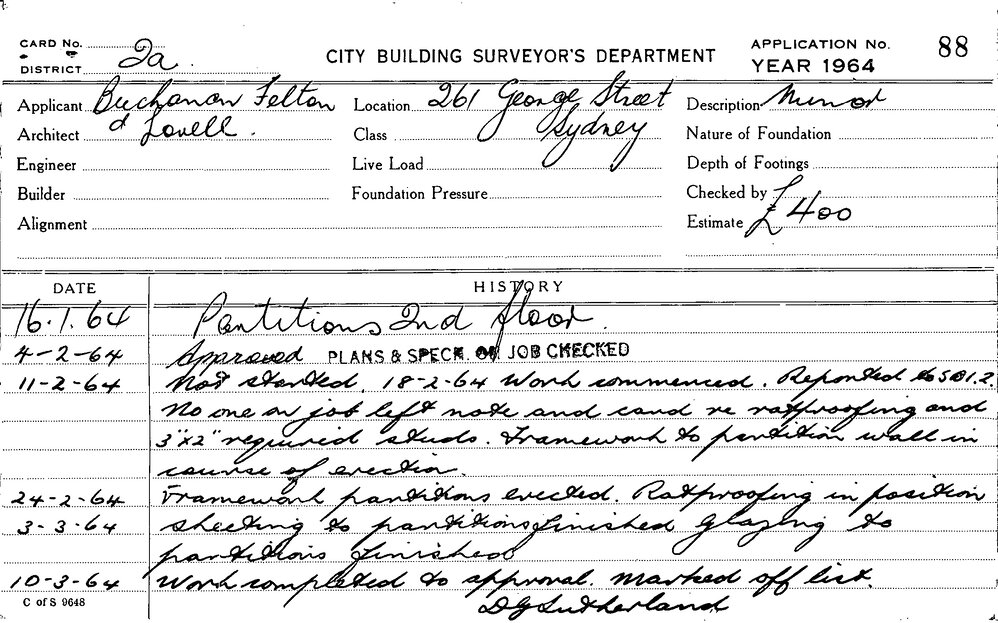 CARD No.
DISTRICT 2a.
CITY BUILDING SURVEYOR'S DEPARTMENT
APPLICATION No. 88
YEAR 1964
Applicant Buchanan Felton
Architect & Lovell.
Engineer
Builder
Alignment
Location 261 George Street
Class Sydney
Live Load
Foundation Pressure
Description Minor
Nature of Foundation
Depth of Footings
Checked by
Estimate £400
DATE HISTORY
16.1.64 Partitions 2nd floor.
4-2-64 Approved PLANS & SPECN. ON JOB CHECKED
11-2-64 Not started. 18-2-64 Work commenced. Reported to
No one on job left note and card re ratproofing and
3"x2" required studs. Framework to partition wall in
course of erection.
24-2-64 Framework partitions erected. Ratproofing in position
3-3-64 Sheeting to partitions finished glazing to
partitions finished
10-3-64 Work completed to approval. Marked off list.
C of S 9648 DG Sutherland